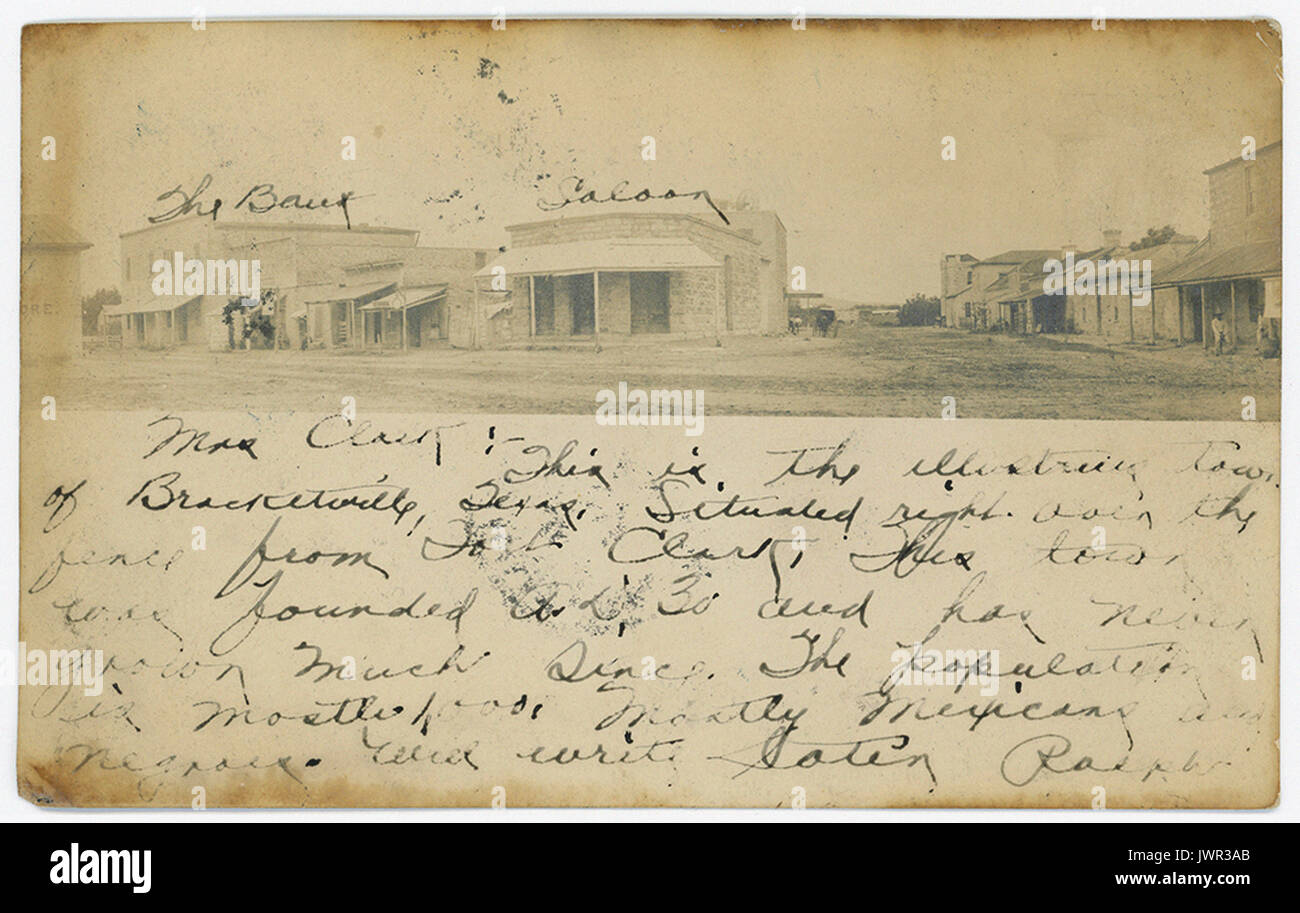 The Bank Saloon
ORE.
Mrs Clark:
This is the illustrius town
of Bracketville, Texas. Situated right over the
fence from Fort Clark, This town
was founded A.D, 30 and has never
grown much since. The population
is mostly 1,000. Mostly Mexicans and
negroes. Will write later Ralph
alamy
Image ID: JWR3AB
www.alamy.com